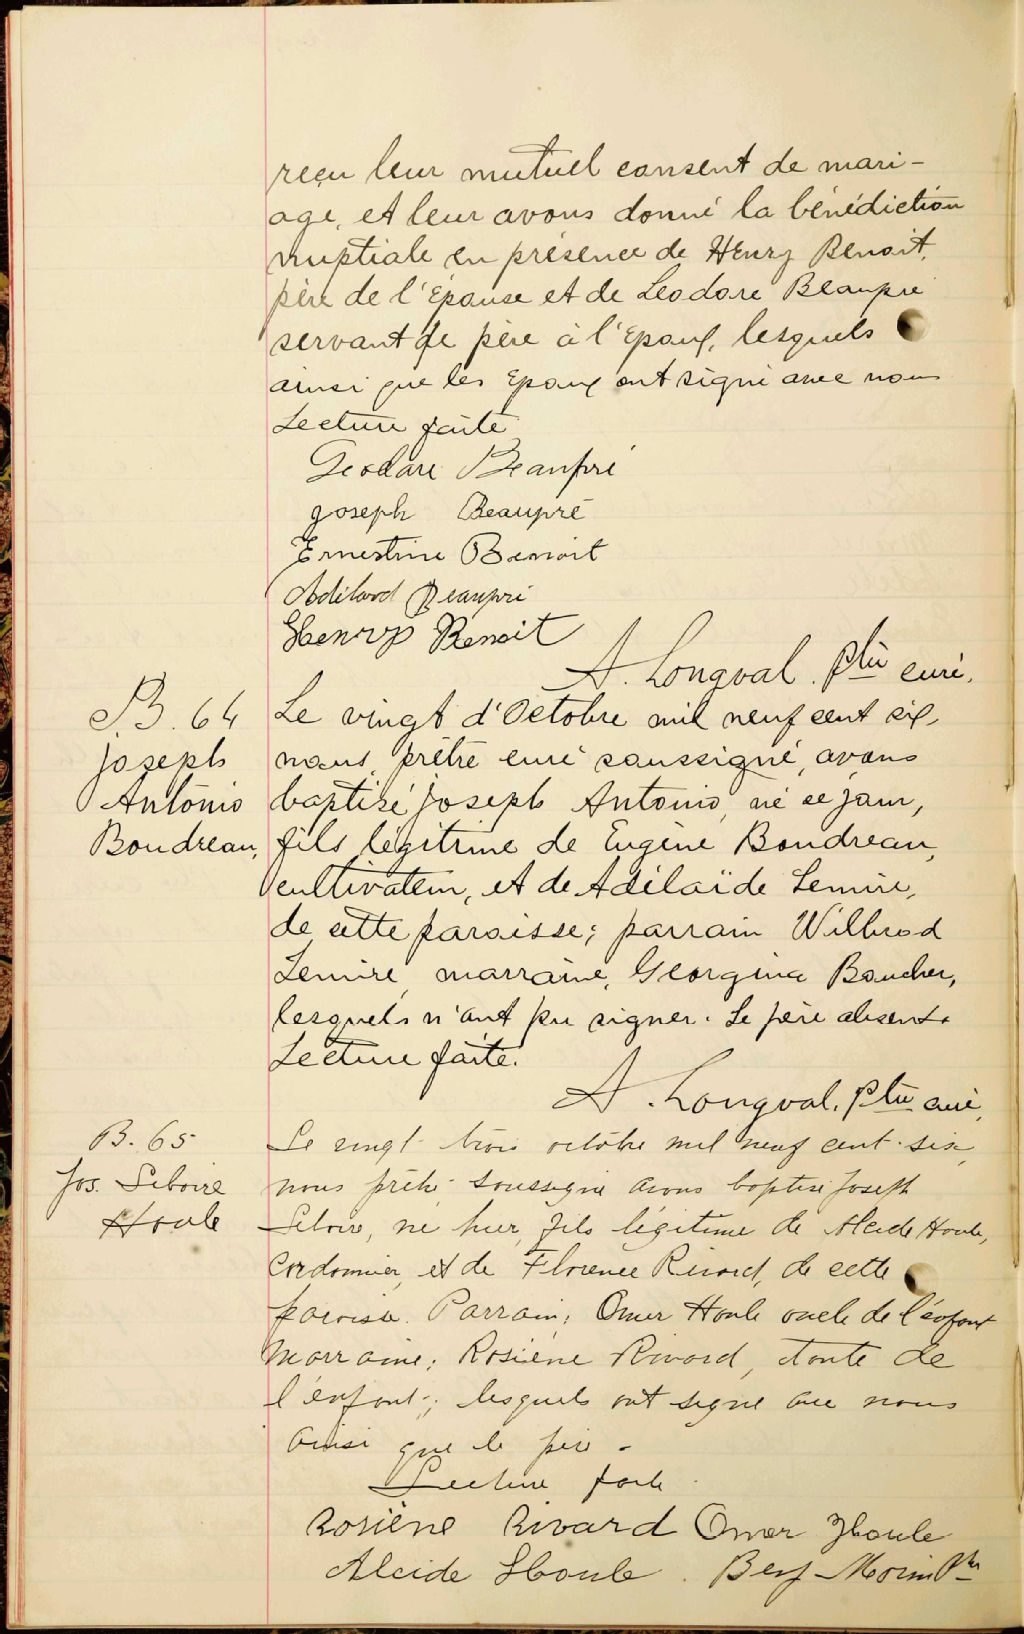 reçu leur mutuel consent de mari-
age, et leur avons donné la bénédiction
nuptiale en présence de Henry Benoit,
père de l'Epouse et de Léodore Beaupré
servant de père à l'Epoux, lesquels
ainsi que les Epoux ont signé avec nous
Lecture faite
Géodore Beaupré
Joseph Beaupré
Ernestine Benoit
Adélard Beaupré
Henry Benoit
A. Longval. Ptre curé.
B. 64
Joseph
Antonio
Boudreau,
Le vingt d'Octobre mil neuf cent six,
nous, prêtre curé soussigné, avons
baptisé Joseph Antonio, né ce jour,
fils légitime de Eugène Boudreau,
cultivateur, et de Adélaïde Lemire,
de cette paroisse; parrain Wilbrod
Lemire, marraine, Georgina Boucher,
lesquels n'ont pu signer. Le père absent.
Lecture faite.
A. Longval. Ptre curé,
B. 65
Jos. Liboire
Houle
Le vingt-trois octobre mil neuf cent-six,
nous prêtre soussigné avons baptisé Joseph
Liboire, né hier, fils légitime de Alcide Houle,
Cordonnier, et de Florence Rivard, de cette
paroisse. Parrain; Omer Houle oncle de l'enfant
Marraine; Rosiène Rivard, tante de
l'enfant; lesquels ont signé avec nous
ainsi que le père.
Lecture faite
Rosiène Rivard Omer Houle
Alcide Houle. Benj-Morin Ptre